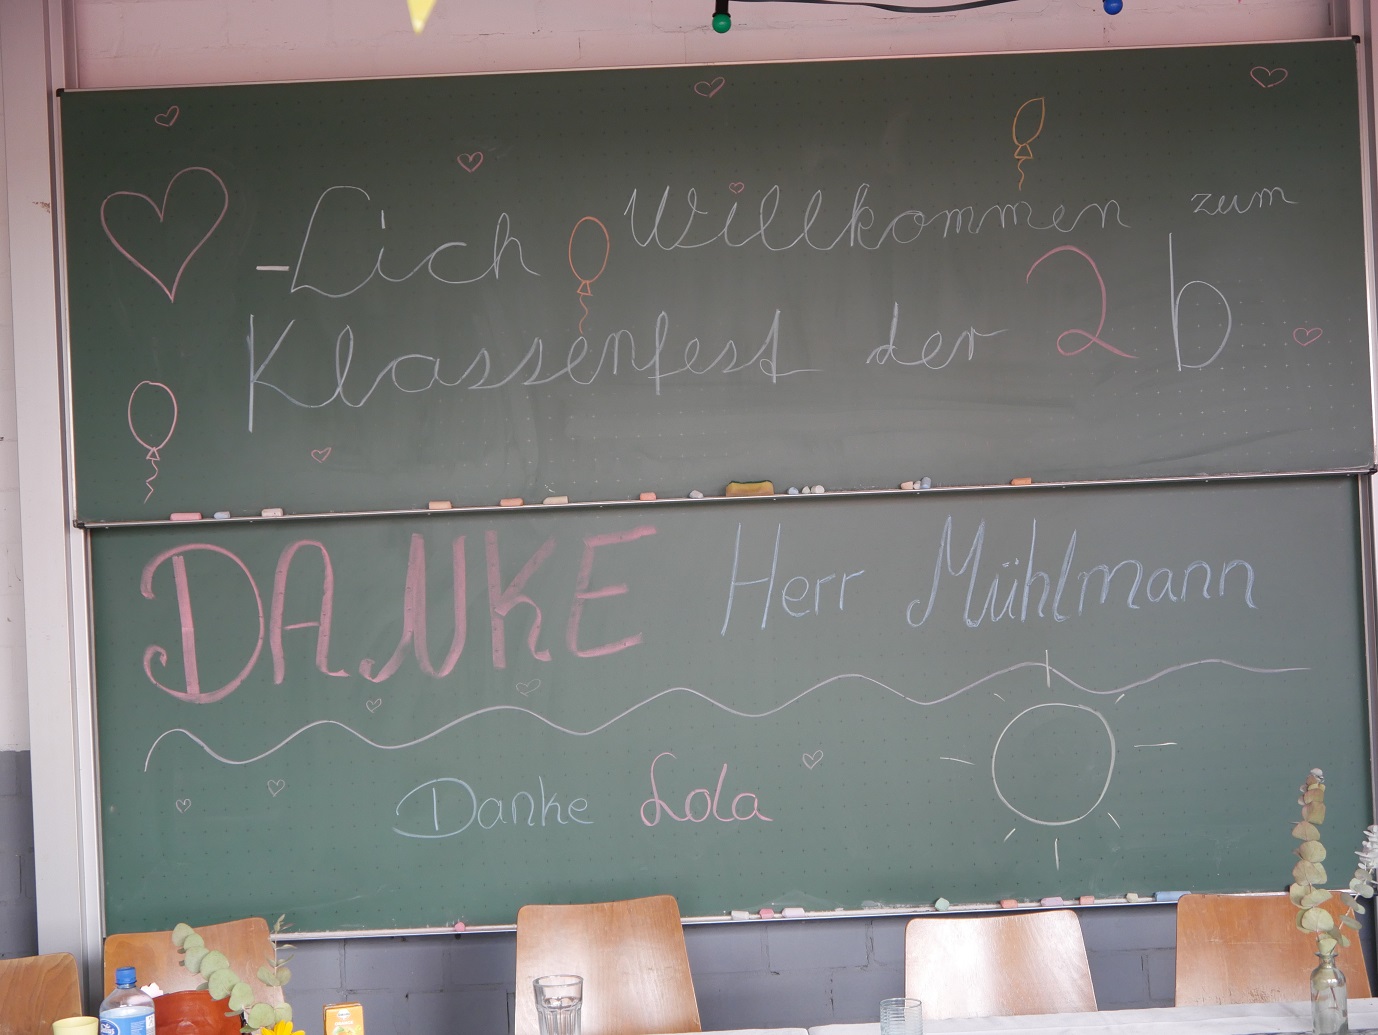 -Lich Willkommen zum
Klassenfest der 2 b
DANKE Herr Mühlmann
Danke Lola